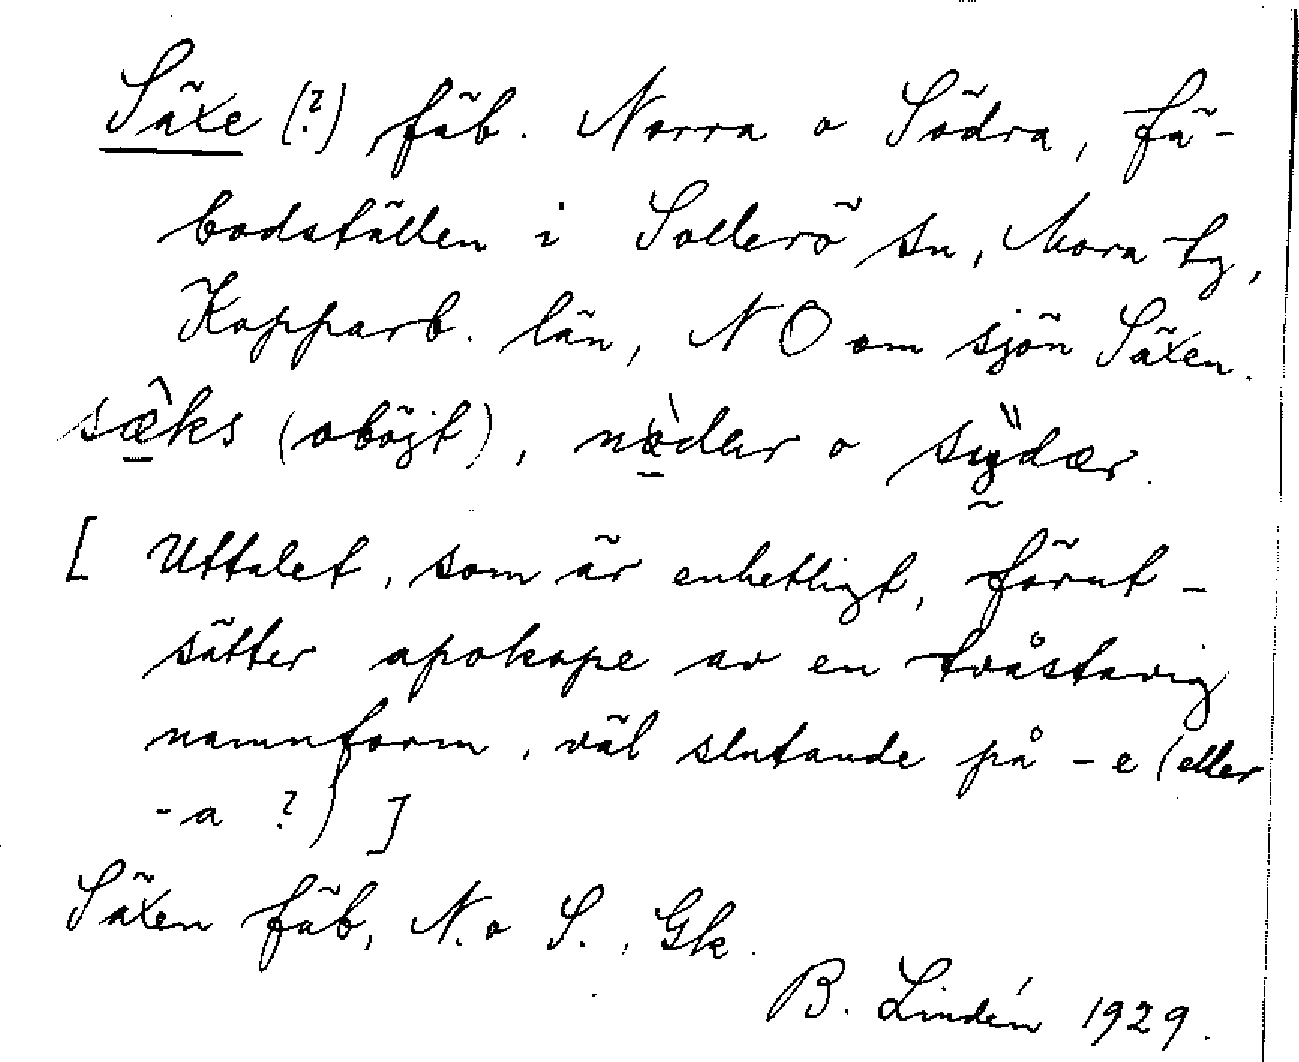 Säxe (?) fäb. Norra o Södra, fä-
bodställen i Sollerö sn, Mora tg,
Kopparb. län, NO om sjön Säxen.
sæ̀ks (oböjt), nòdær o sỳdær.
[ Uttalet, som är enhetligt, förut-
sätter apokope av en tvåstavig
namnform, väl slutande på -e (eller
-a ?) ]
Säxen fäb, N. o S., Gk.
B. Lindén 1929.